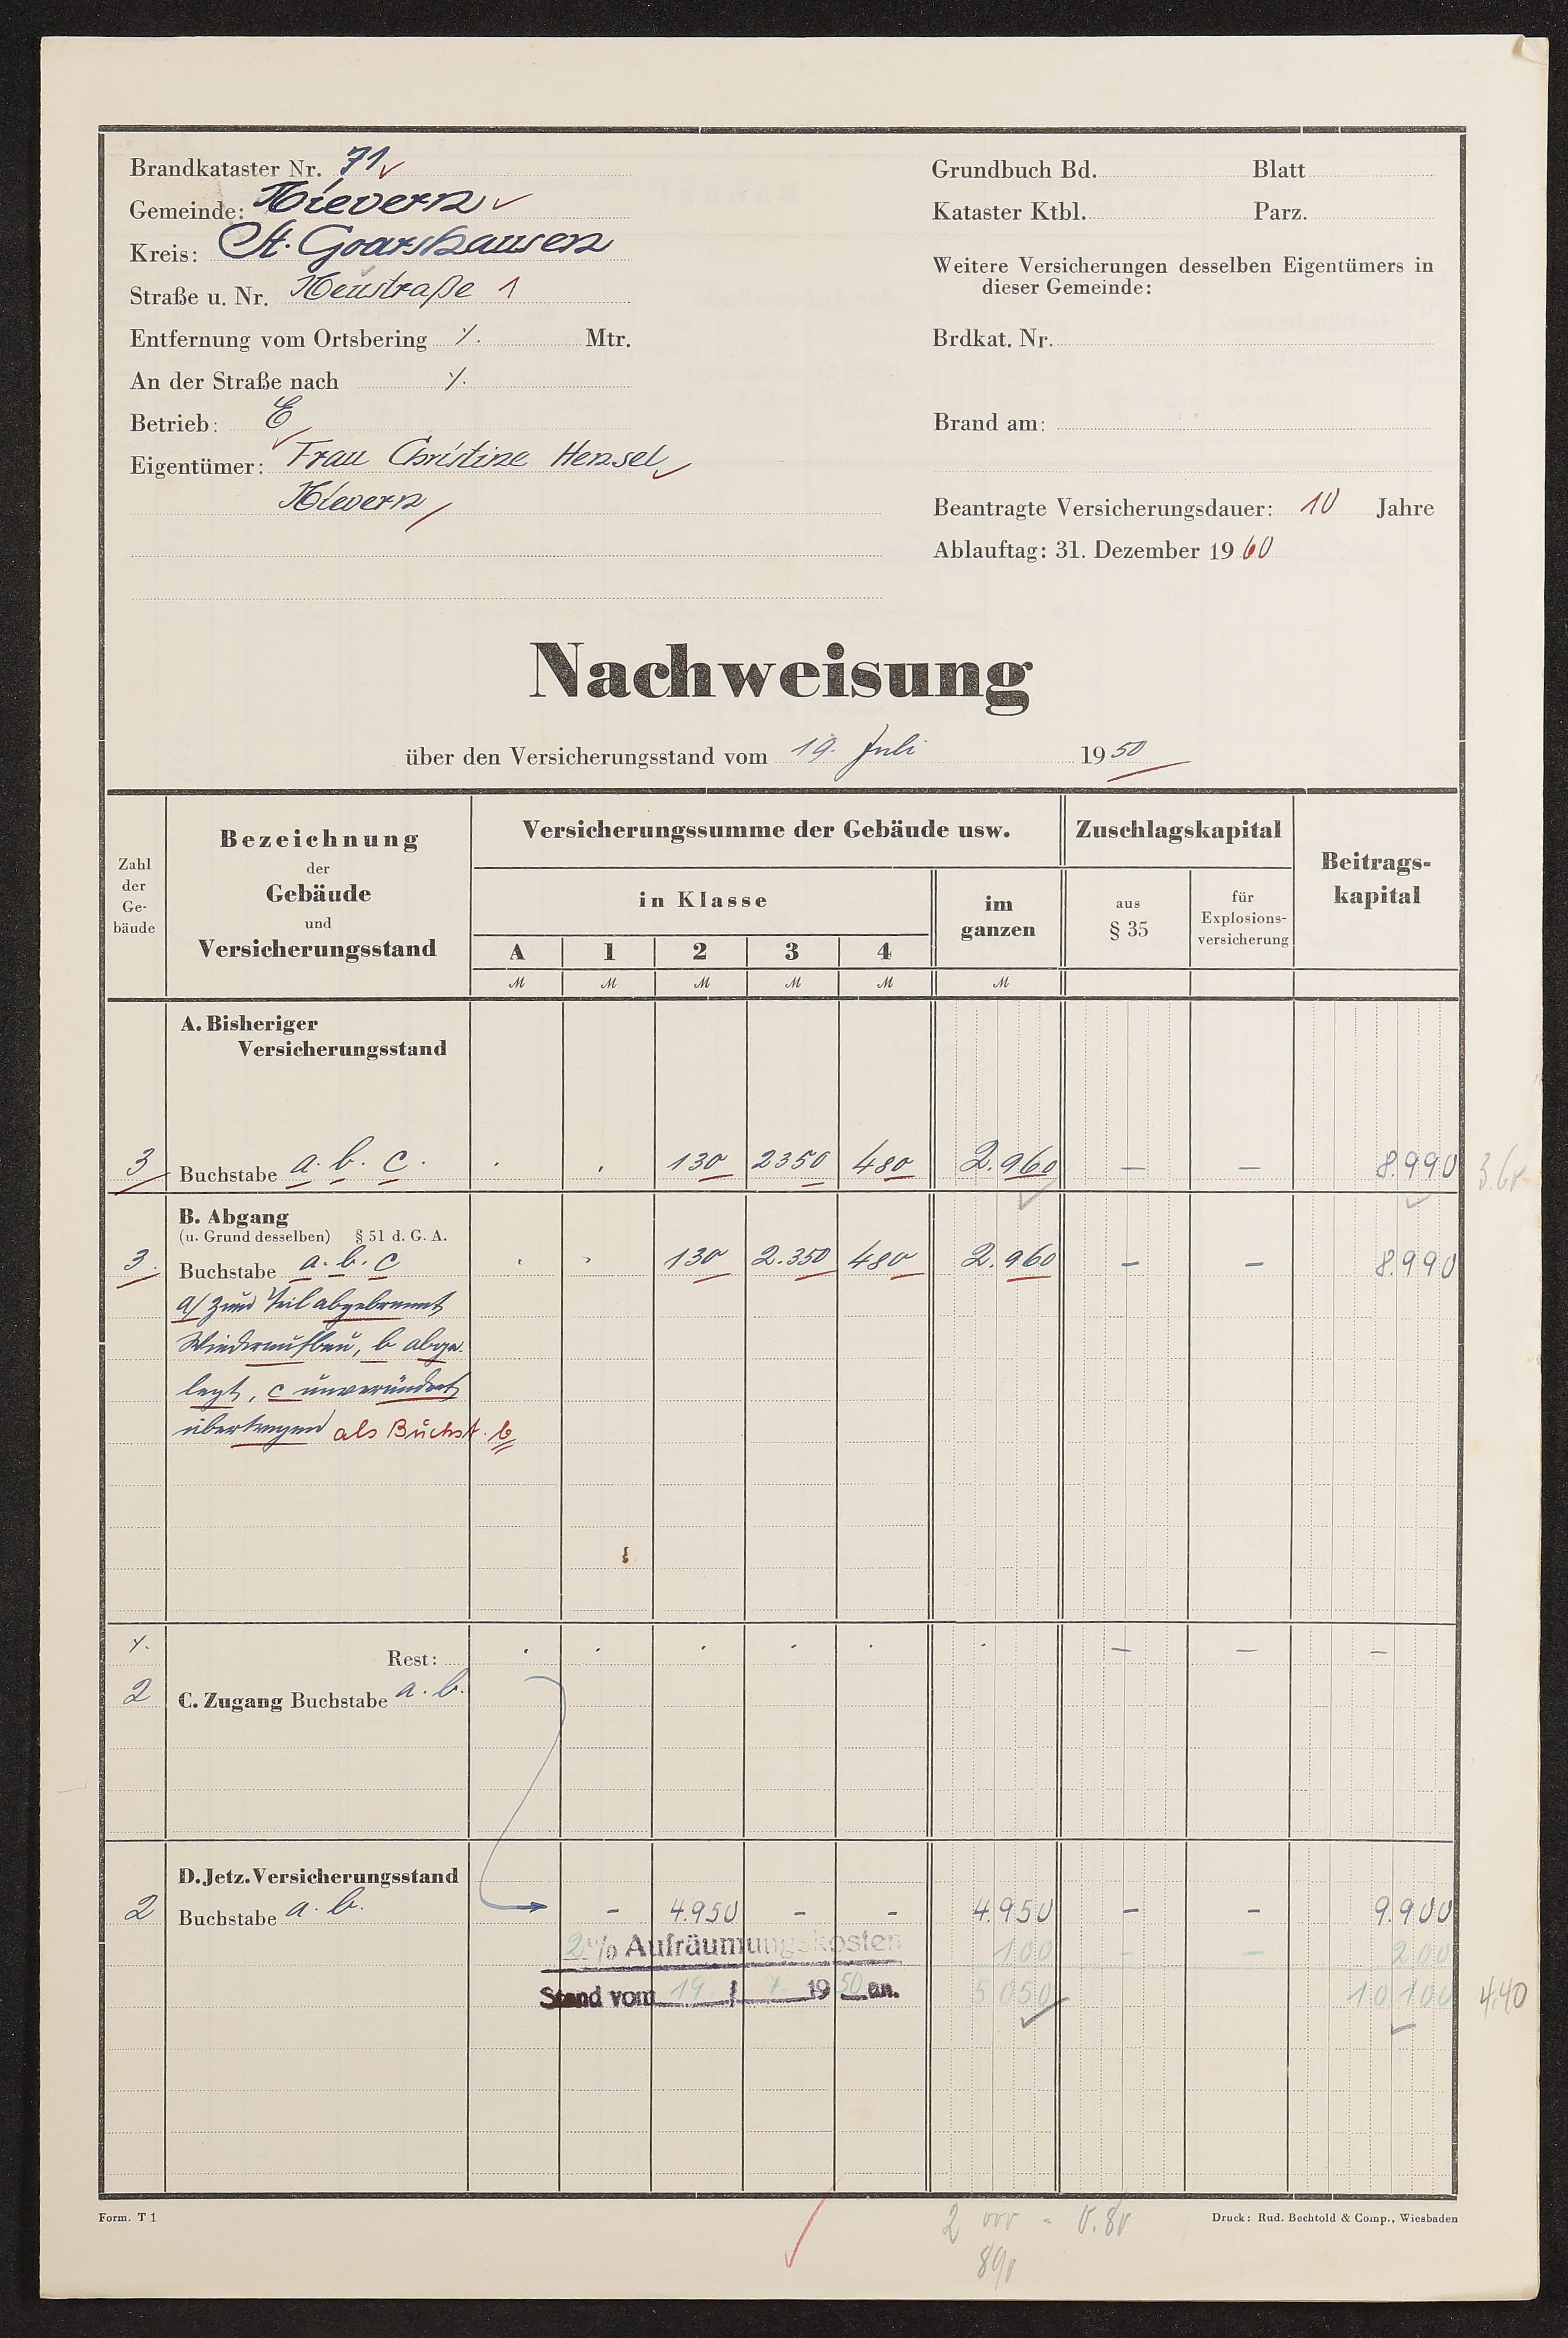 Brandkataster Nr. 71
Gemeinde: Nievern
Kreis: St. Goarshausen
Straße u. Nr. Neustraße 1
Entfernung vom Ortsbering ·/. Mtr.
An der Straße nach ·/.
Betrieb: E
Eigentümer: Frau Christine Hensel
Nievern
Grundbuch Bd. Blatt
Kataster Ktbl. Parz.
Weitere Versicherungen desselben Eigentümers in
dieser Gemeinde:
Brdkat. Nr.
Brand am:
Beantragte Versicherungsdauer: 10 Jahre
Ablauftag: 31. Dezember 1960
Nachweisung
über den Versicherungsstand vom 19. Juli 1950
Zahl
der
Ge-
bäude
Bezeichnung
der
Gebäude
und
Versicherungsstand
Versicherungssumme der Gebäude usw.
in Klasse
A 1 2 3 4
im
ganzen
M M M M M M
Zuschlagskapital
aus
§ 35
für
Explosions-
versicherung
Beitrags-
kapital
A. Bisheriger
Versicherungsstand
3 Buchstabe a. b. c. . . 130 2350 480 2.960 — — 8.990 3.60
B. Abgang
(u. Grund desselben) § 51 d. G. A.
3 Buchstabe a. b. c . . 130 2.350 480 2.960 — — 8.990
a/ zum Teil abgebrannt
Wiederaufbau, b abge-
legt, c unverändert
übertragen als Buchst. b
·/. Rest: . . . . . . — — —
2 C. Zugang Buchstabe a. b.
D. Jetz. Versicherungsstand
2 Buchstabe a. b. - 4.950 - - 4.950 - - 9.900
2% Aufräumungskosten 100 - - 200
Stand vom 19. / 7. 1950 an. 5 050 10 100 4.40
Form. T 1
2 000 = 0.80
890
Druck: Rud. Bechtold & Comp., Wiesbaden